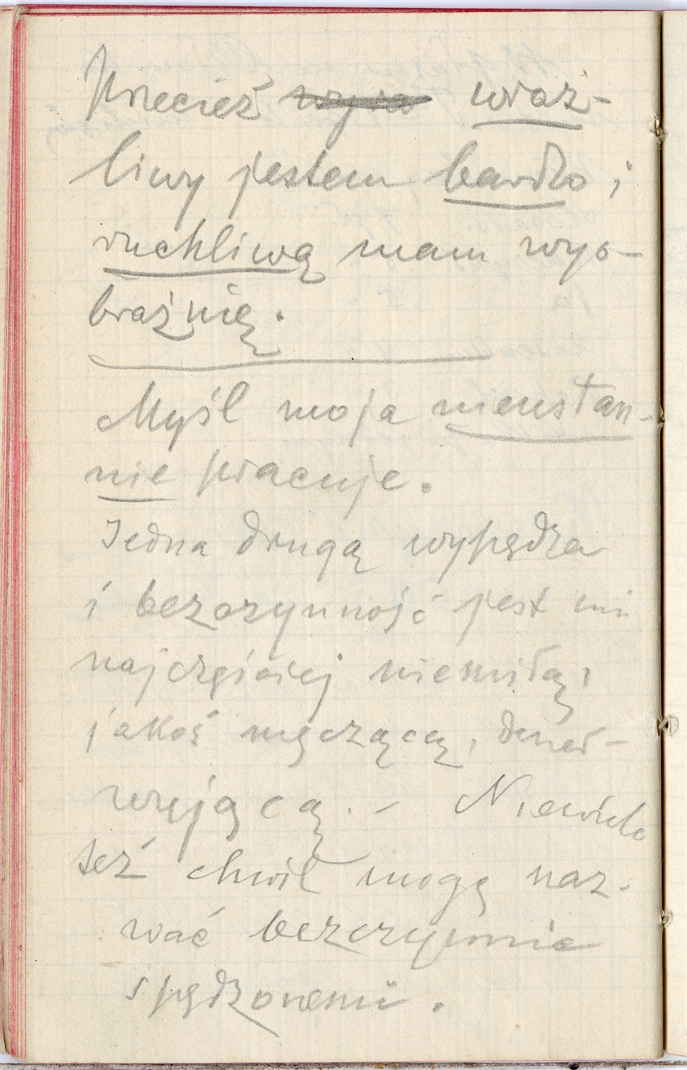 Przecież wraż-
liwy jestem bardzo i
ruchliwą mam wyo-
braźnię.
Myśl moja nieustan-
nie pracuje.
Jedna drugą wypędza
i bezczynność jest mi
najczęściej niemiłą,
jakoś męczącą, dener-
wującą. – Niewiele
też chwil mogę naz-
wać bezczynnie
spędzonemi.